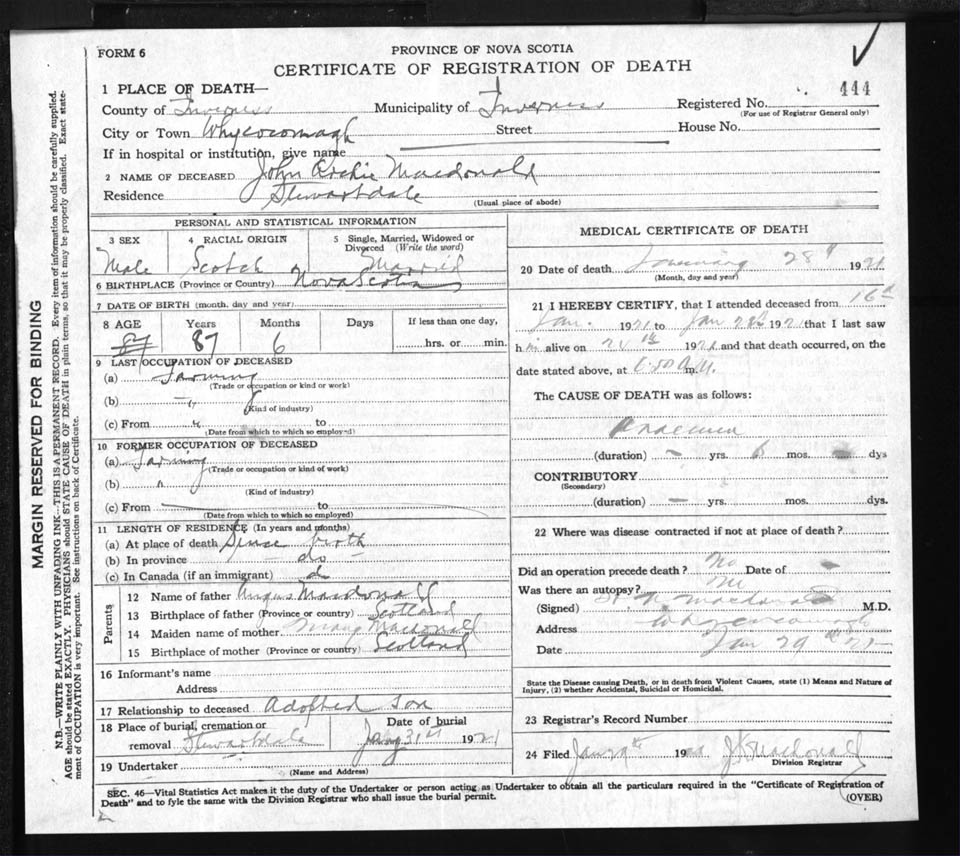 FORM 6
PROVINCE OF NOVA SCOTIA
CERTIFICATE OF REGISTRATION OF DEATH
444
1 PLACE OF DEATH—
County of Inverness Municipality of Inverness Registered No.
(For use of Registrar General only)
City or Town Whycocomagh Street House No.
If in hospital or institution, give name
2 NAME OF DECEASED John Archie Macdonald
Residence Stewartdale
(Usual place of abode)
PERSONAL AND STATISTICAL INFORMATION
3 SEX 4 RACIAL ORIGIN 5 Single, Married, Widowed or Divorced (Write the word)
Male Scotch Married
6 BIRTHPLACE (Province or Country) Nova Scotia
7 DATE OF BIRTH (month, day and year)
8 AGE Years Months Days If less than one day,
87 6 hrs. or min.
9 LAST OCCUPATION OF DECEASED
(a) Farming
(Trade or occupation or kind or work)
(b) "
(Kind of industry)
(c) From " to
(Date from which to which so employed)
10 FORMER OCCUPATION OF DECEASED
(a) Farming
(Trade or occupation or kind of work)
(b) "
(Kind of industry)
(c) From to
(Date from which to which so employed)
11 LENGTH OF RESIDENCE (In years and months)
(a) At place of death Since birth
(b) In province do —
(c) In Canada (if an immigrant)
Parents
12 Name of father Angus Macdonald
13 Birthplace of father (Province or country) Scotland
14 Maiden name of mother Mary Macdonald
15 Birthplace of mother (Province or country) Scotland
16 Informant's name
Address
17 Relationship to deceased Adopted Son
18 Place of burial, cremation or removal Stewartdale Date of burial Jany 31st 1921
19 Undertaker
(Name and Address)
MEDICAL CERTIFICATE OF DEATH
20 Date of death January 28th 1921
(Month, day and year)
21 I HEREBY CERTIFY, that I attended deceased from 16th
Jan. 1921 to Jan 28th 1921 that I last saw
him alive on 1921 and that death occurred, on the
date stated above, at A.M. m.
The CAUSE OF DEATH was as follows:
(duration) — yrs. 6 mos. dys
CONTRIBUTORY
(Secondary)
(duration) — yrs. mos. dys.
22 Where was disease contracted if not at place of death?
Did an operation precede death? No Date of
Was there an autopsy? No
(Signed) Macdonald M.D.
Address Whycocomagh
Date Jan 29th 21
State the Disease causing Death, or in death from Violent Causes, state (1) Means and Nature of Injury, (2) whether Accidental, Suicidal or Homicidal.
23 Registrar's Record Number
24 Filed Jan 29th 1921 Macdonald
Division Registrar
SEC. 46—Vital Statistics Act makes it the duty of the Undertaker or person acting as Undertaker to obtain all the particulars required in the "Certificate of Registration of
Death" and to fyle the same with the Division Registrar who shall issue the burial permit.
(OVER)
MARGIN RESERVED FOR BINDING
N.B.—WRITE PLAINLY WITH UNFADING INK—THIS IS A PERMANENT RECORD. Every item of information should be carefully supplied.
AGE should be stated EXACTLY. PHYSICIANS should STATE CAUSE OF DEATH in plain terms, so that it may be properly classified. Exact statement of OCCUPATION is very important. See instructions on back of Certificate.